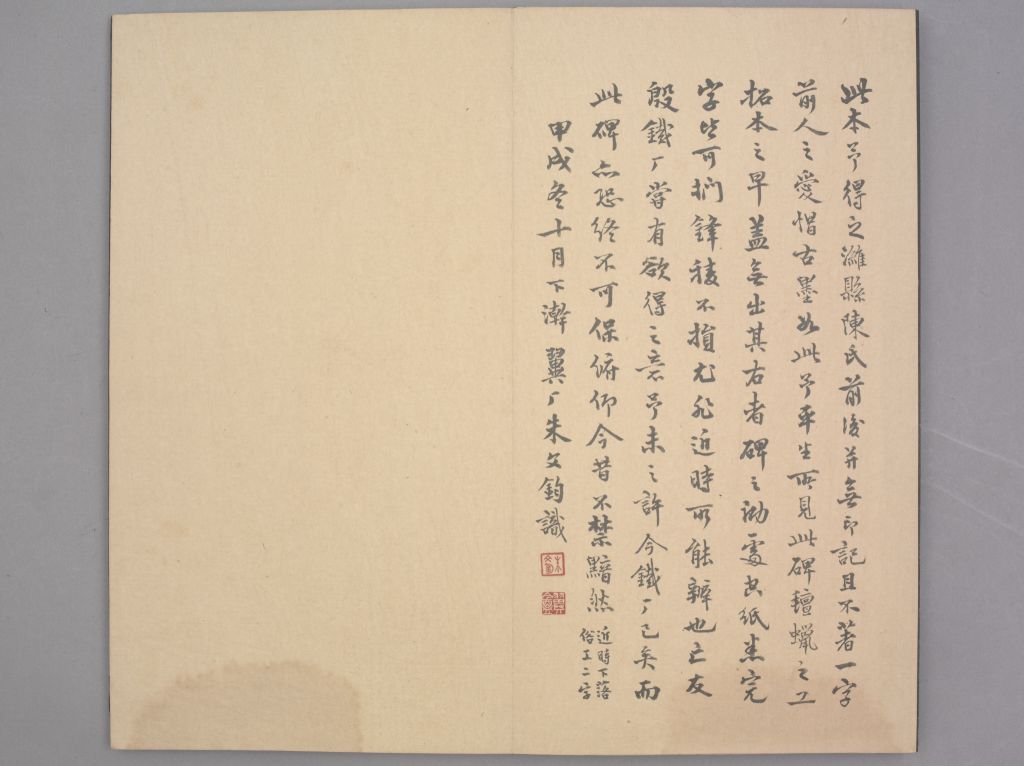 此本予得之濰縣陳氏前後并無印記且不著一字
前人之愛惜古墨如此予平生所見此碑氊蠟之工
拓本之早蓋無出其右者碑之泐處空紙悉完
字皆可捫鋒稜不損尤非近時所能辦也亡友
殷鐵厂嘗有欲得之意予未之許今鐵厂已矣而
此碑亦恐終不可保俯仰今昔不禁黯然
近時下落
俗工二字
甲戌冬十月下澣翼厂朱文鈞識
朱文鈞